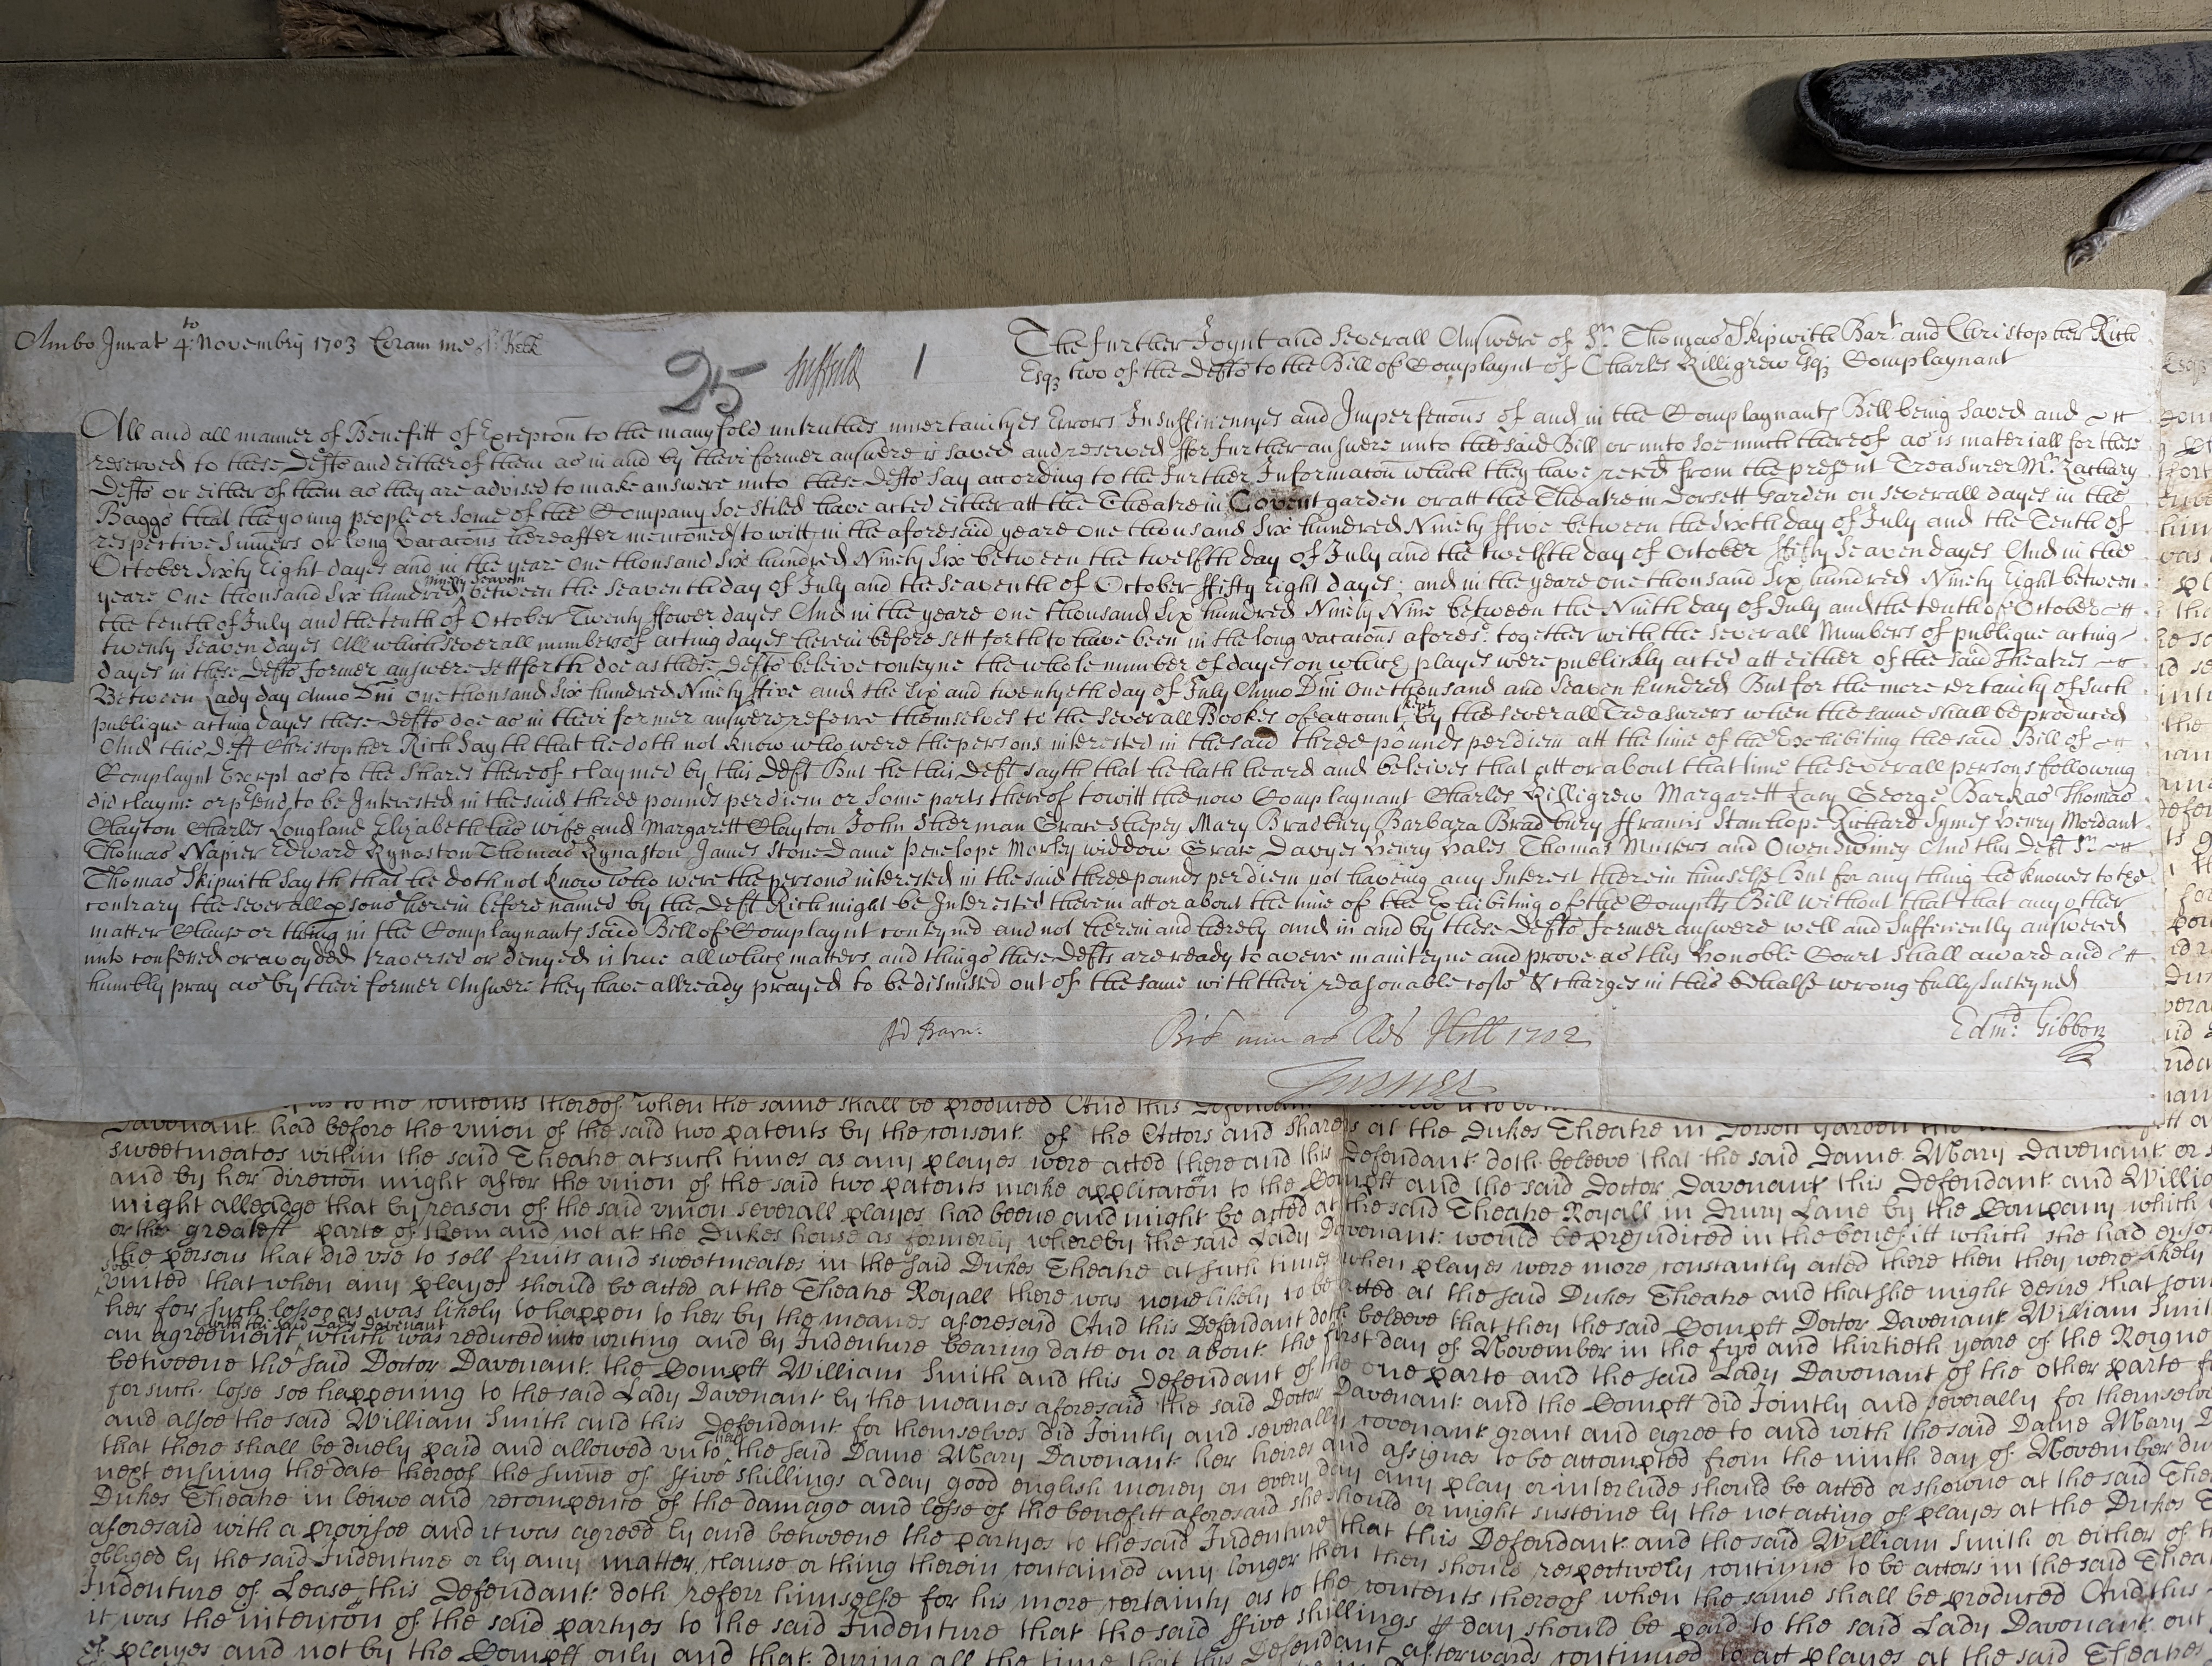 Ambo Jurat 4to Novembris 1703 Coram me
25 Suffield 1
The further Joynt and Severall Answere of Sr. Thomas Skipwith Bart and Christopher Rich
Esqz two of the Defts to the Bill of Complaynt of Charles Killigrew Esqz Complaynant
All and all manner of Benefitt of Excepcon to the manyfold untruthes incertaintyes Errors Insufficiencyes and Imperfections of and in the Complaynants Bill being saved and
reserved to these Defts and either of them as in and by their former answere is saved and reserved ffor further answere unto the said Bill or unto soe much thereof as is materiall for these
Defts or either of them as they are advised to make answere unto these Defts say according to the further Informacon which they have reced from the present Treasurer Mr. Zachary
Baggs that the young people or some of the Company soe stiled have acted either att the Theatre in Covent garden or att the Theatre in Dorsett Garden on severall dayes in the
respective Sumers or long vacacons hereafter mencioned to witt in the aforesaid yeare one thousand six hundred Ninety ffive between the sixth day of July and the Tenth of
October Sixty Eight dayes and in the yeare One thousand Six hundred Ninety Six between the twelfth day of July and the twelfth day of October ffifty Seaven dayes And in the
yeare One thousand Six hundred Ninety Seaven between the seaventh day of July and the Seaventh of October ffifty Eight dayes; and in the yeare one thousand six hundred Ninety Eight between
the tenth of July and the tenth of October Twenty ffower dayes And in the yeare one thousand Six hundred Ninety Nine between the Ninth day of July and the tenth of October
twenty Seaven dayes All which severall numbers of acting dayes herein before sett forth to have been in the long vacacons afores'd. together with the severall Numbers of publique acting
dayes in these Defts former answere settforth doe as these Defts beleive conteyne the whole number of dayes on which playes were publickly acted att either of the said Theatres
Between Lady day Anno Dni One thousand Six hundred Ninety ffive and the Six and twentyeth day of July Anno Dni One thousand and Seaven hundred But for the more certainty of such
publique acting dayes these Defts doe as in their former answere referre themselves to the severall Bookes of account kept by the severall Treasurers when the same shall be produced
And this Deft Christopher Rich sayth that he doth not know who were the persons interested in the said three pounds per diem att the time of the Exhibiting the said Bill of
Complaynt Except as to the shares thereof claymed by this Deft But he this Deft sayth that he hath heard and beleives that att or about that time the severall persons following
did clayme or prtend to be Interested in the said three pounds per diem or some parts thereof towitt the now Complaynant Charles Killigrew Margarett Lacy George Barkas Thomas
Clayton Charles Longland Elizabeth his wife and Margarett Clayton John Sherman Grace Shepey Mary Bradbury Barbara Bradbury ffrancis Stanhope Richard Symes Henry Mordant
Thomas Napier Edward Kynaston Thomas Kynaston James Stone Dame Penelope Morley widdow Grace Davyes Henry Hales Thomas Musters and Owen Swiney And this Deft Sr
Thomas Skipwith sayth that he doth not know who were the persons interested in the said three pounds per diem not haveing any Interest therein himselfe But for any thing he knowes to the
contrary the severall psons herein before named by the Deft Rich might be Interested therein att or about the time of the Exhibiting of the Complts Bill without that that any other
matter Clause or thing in the Complaynants said Bill of Complaynt conteyned and not herein and hereby and in and by these Defts former answere well and sufficiently answered
unto confessed or avoyded traversed or denyed is true all which matters and things these Defts are ready to averre mainteyne and prove as this Honoble Court shall award and
humbly pray as by their former Answere they have allready prayed to be dismissed out of the same with their reasonable costs & charges in this behalfe wrongfully susteyned
Edmd: Gibbon
as to the contents thereof when the same shall be produced And this Defendant
Davenant had before the vnion of the said two patents by the consent of the Actors and sharers at the Dukes Theatre in Dorsett Garden
sweetmeates within the said Theatre at such times as any playes were acted there and this Defendant doth beleeve that the said Dame Mary Davenant or
and by her direccon might after the vnion of the said two patents make applicacon to the Complt and the said Doctor Davenant this Defendant and Willia
might alleadge that by reason of the said vnion severall playes had beene and might be acted at the said Theatre Royall in Drury Lane by the Company which
or the greatest parte of them and not at the Dukes house as formerly whereby the said Lady Davenant would be prejudiced in the benefitt which she had
the persons that did vse to sell fruits and sweetmeates in the said Dukes Theatre at such times when playes were more constantly acted there then they were likely
vnited that when any playes should be acted at the Theatre Royall there was none likely to be acted at the said Dukes Theatre and that she might desire that som
her for such losse as was likely to happen to her by the meanes aforesaid And this Defendant doth beleeve that they the said Complt Doctor Davenant William Smit
an agreement with the said Lady Davenant which was reduced into writing and by Indenture bearing date on or about the first day of November in the five and thirtieth yeare of the Reigne
betweene the said Doctor Davenant the Complt William Smith and this Defendant of the one parte and the said Lady Davenant of the other parte
for such losse soe happening to the said Lady Davenant by the meanes aforesaid the said Doctor Davenant and the Complt did Jointly and severally for themselve
and alsoe the said William Smith and this Defendant for themselves did Jointly and severally covenant grant and agree to and with the said Dame Mary D
that there shall be duely paid and allowed vnto the said Dame Mary Davenant her heires and assignes to be accompted from the ninth day of November
next ensuing the date thereof the sume of ffive shillings a day good english money on every day any play or interlude should be acted or showne at the said Thea
Dukes Theatre in leiwe and recompence of the damage and losse of the benefitt aforesaid she should or might susteine by the not acting of playes at the Dukes
aforesaid with a provisoe and it was agreed by and betweene the partyes to the said Indenture that this Defendant and the said William Smith or either of
obliged by the said Indenture or by any matter clause or thing therein contained any longer then they should respectively continue to be actors in the said Thea
Indenture of Lease this Defendant doth referr himselfe for his more certainty as to the contents thereof when the same shall be produced And this
it was the intencon of the said partyes to the said Indenture that the said ffive shillings p day should be paid to the said Lady Davenant out
of playes and not by the Complt only and that during all the time that this Defendant afterwards continued to act playes at the said Theatres